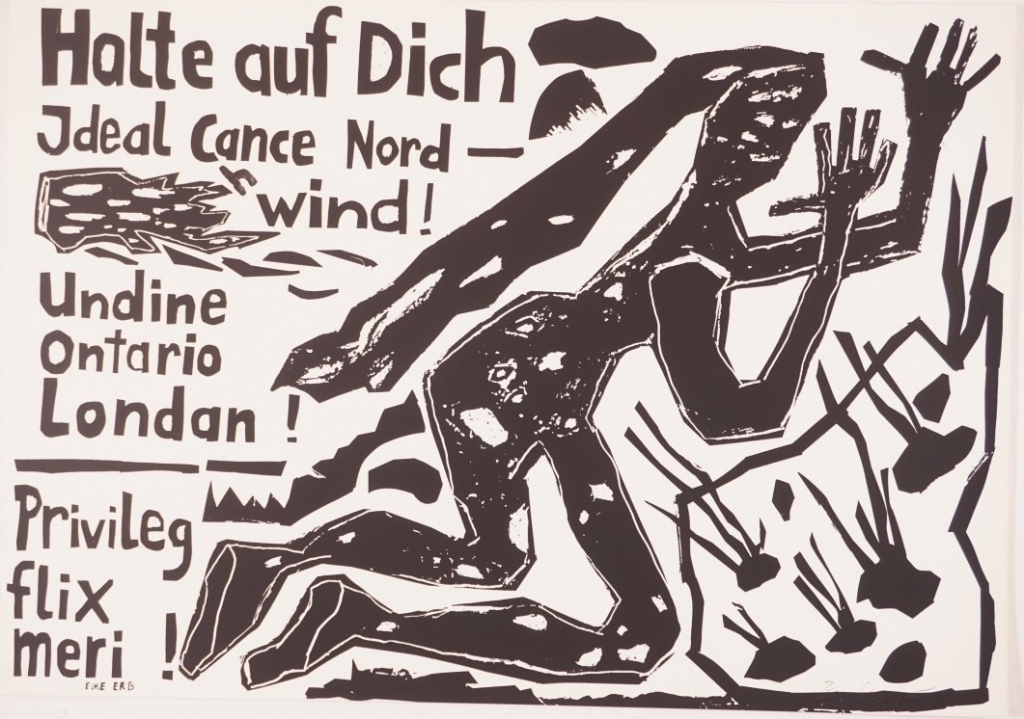 Halte auf Dich
Jdeal Cance Nord —
h wind!
Undine
Ontario
Londan !
Privileg
flix
meri !
ELKE ERB